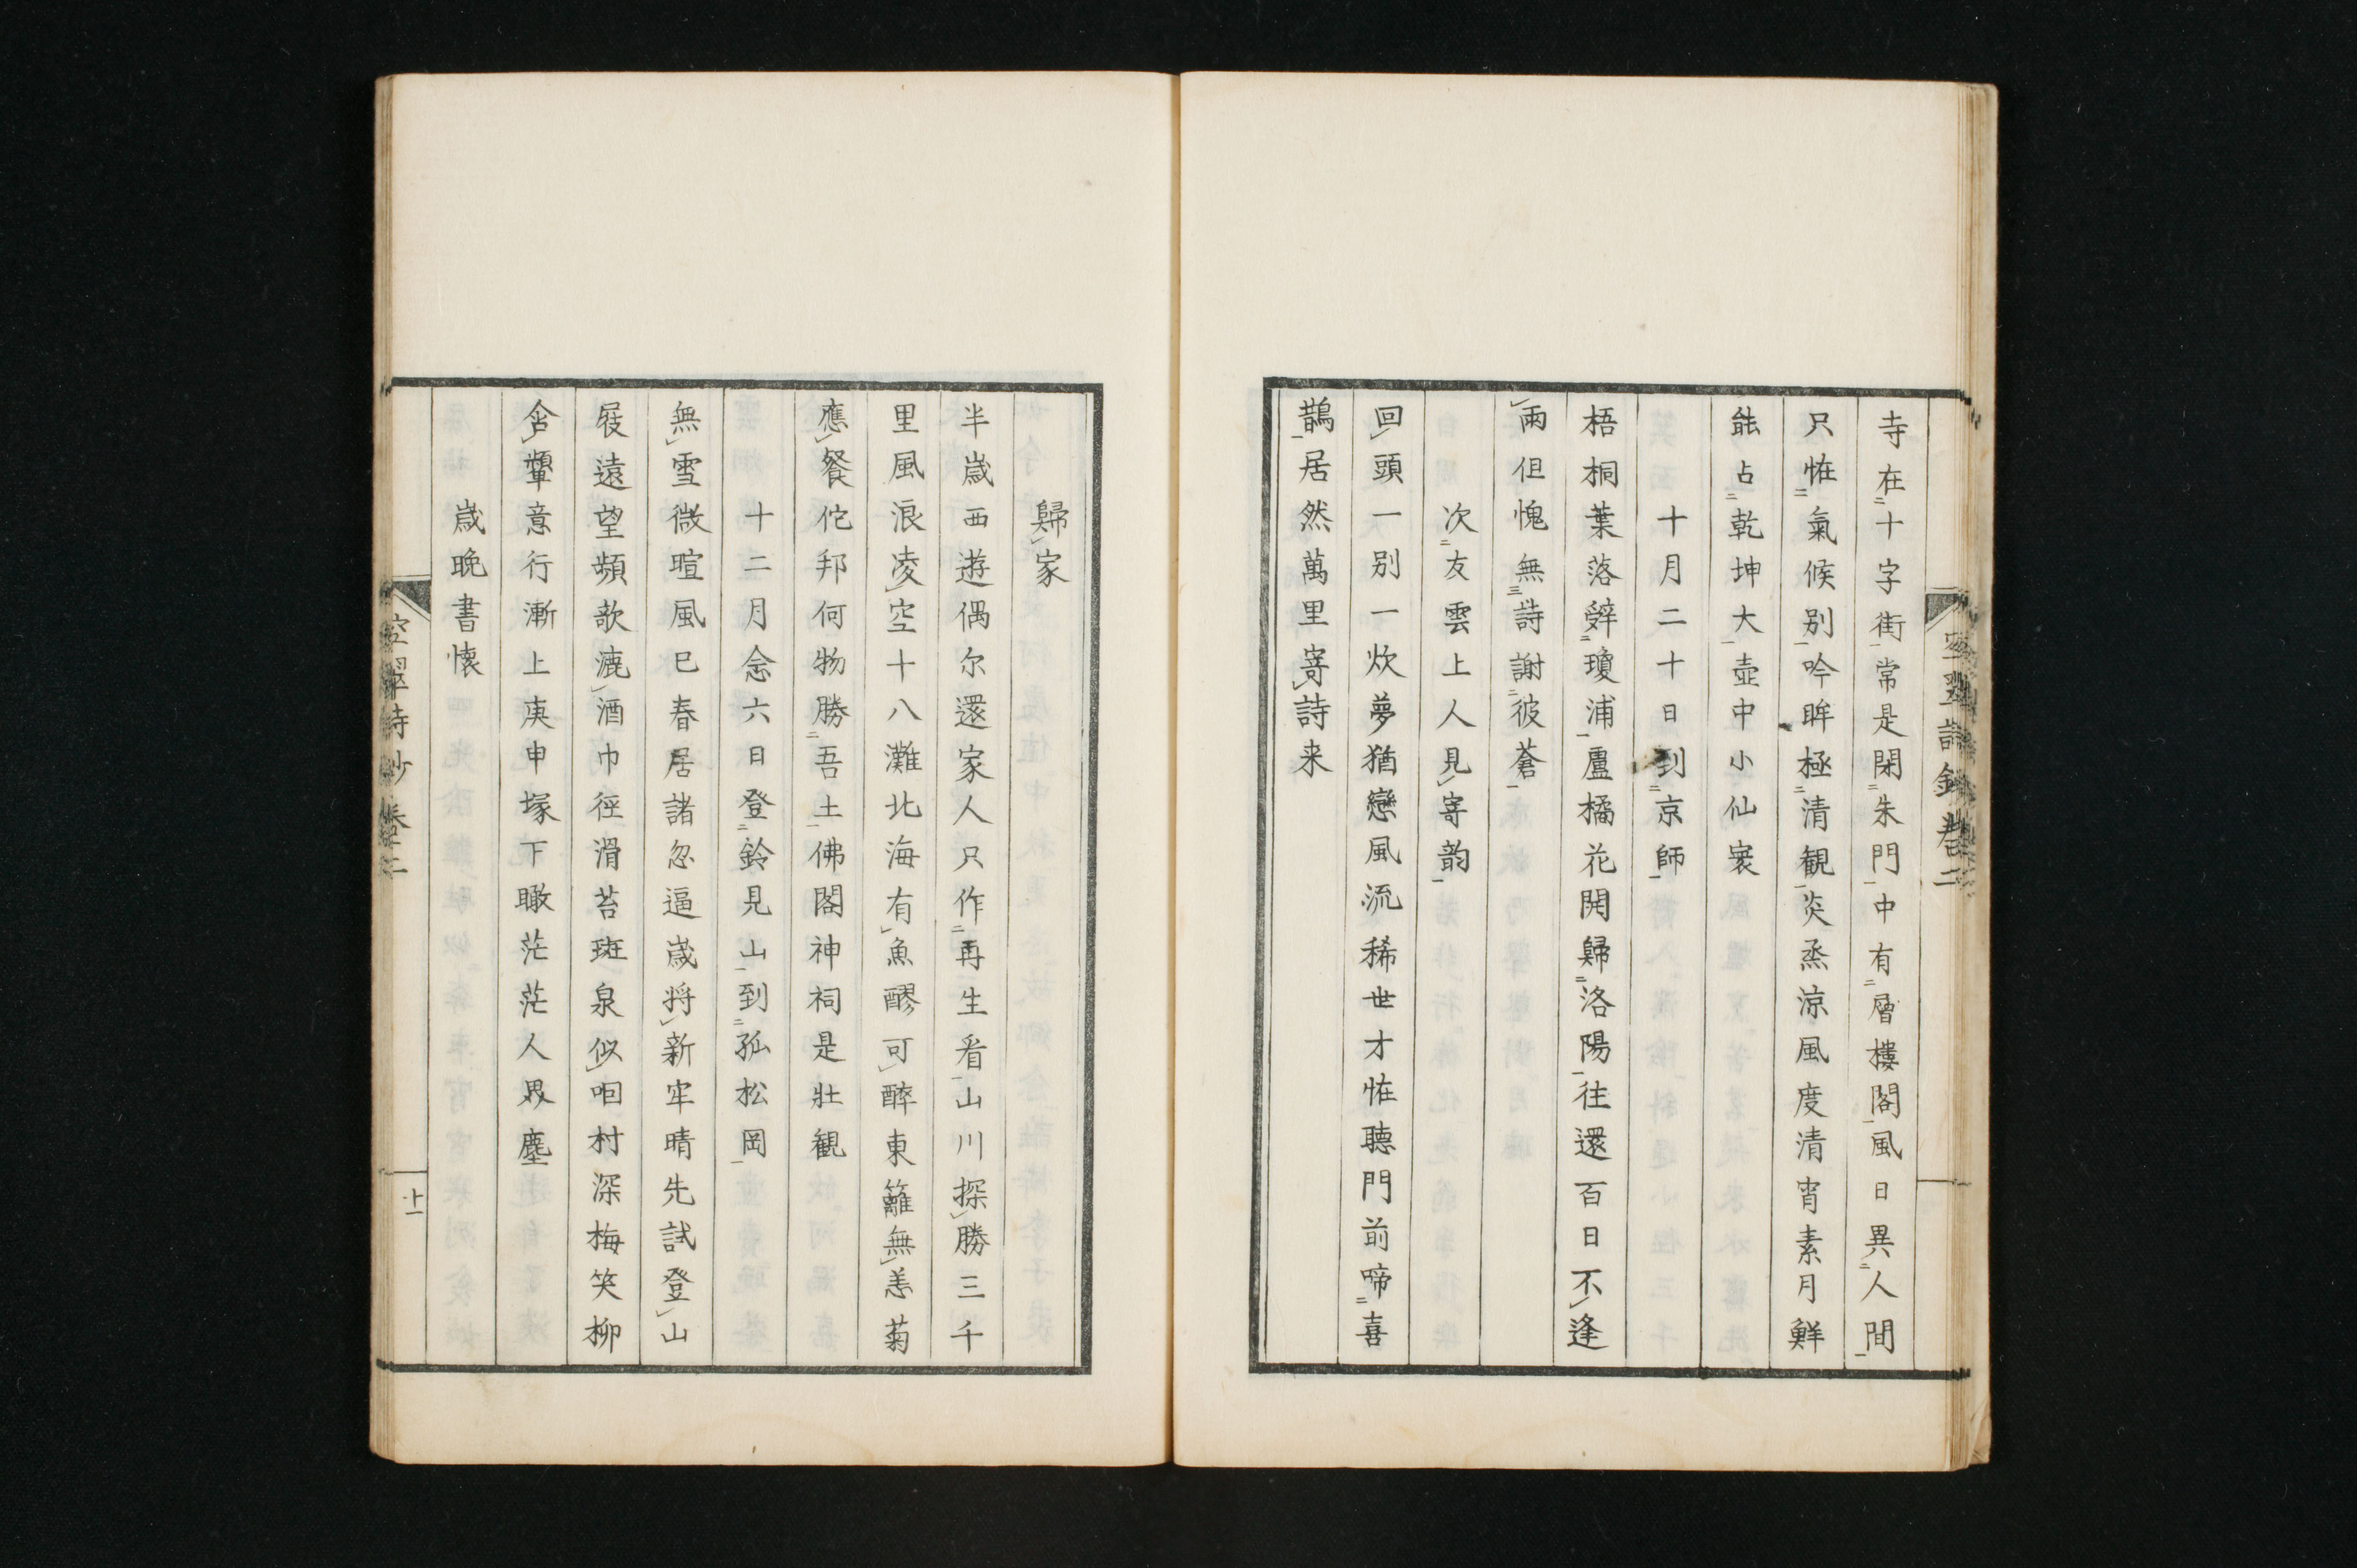 寺在十字街常是閑朱門中有層樓閣風日異人間
只恠氣候别吟眸極清観炎烝涼風度清宵素月鮮
能占乾坤大壺中小仙寰
十月二十日到京師
梧桐葉落辤瓊浦盧橘花開歸洛陽往還百日不逢
雨但愧無詩謝彼蒼
次友雲上人見寄韵
回頭一別一炊夢猶戀風流稀世才恠聽門前啼喜
鵲居然萬里寄詩来
歸家
半歳西遊偶尔還家人只作再生看山川探勝三千
里風浪凌空十八灘北海有魚醪可醉東籬無恙菊
應餐佗邦何物勝吾土佛閣神祠是壯観
十二月念六日登鈴見山到孤松岡
無雪微暄風已春居諸忽逼歳将新牢晴先試登山
屐遠望頻歌漉酒巾徑滑苔斑泉似咽村深梅笑柳
含顰意行漸上庚申塚下瞰茫茫人界塵
歳晩書懷
空翠詩鈔卷二
十一